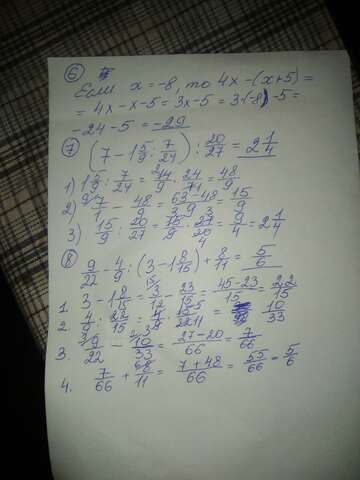 ⑥
Если x = -8, то 4x - (x+5) =
= 4x - x - 5 = 3x - 5 = 3·(-8) - 5 =
-24 - 5 = -29
⑦ (7 - 1 5/9 : 7/24) : 20/27 = 2 1/4
1) 1 5/9 : 7/24 = 14/9 · 24/7 = 48/9
2) 7/1 - 48/9 = 63-48/9 = 15/9
3) 15/9 : 20/27 = 15/9 · 27/20 = 9/4 = 2 1/4
⑧ 9/22 - 4/9 : (3 - 1 8/15) + 8/11 = 5/6
1. 3 - 1 8/15 = 3/1 - 23/15 = 45-23/15 = 22/15
2. 4/9 : 22/15 = 4/9 · 15/22 = 10/33
3. 9/22 - 10/33 = 27-20/66 = 7/66
4. 7/66 + 8/11 = 7+48/66 = 55/66 = 5/6